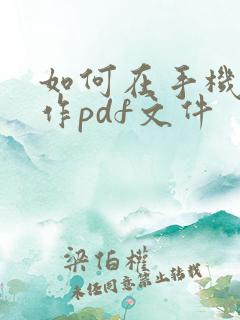 如何在手機
作pdf文件
梁伯權
未任同意禁止转载